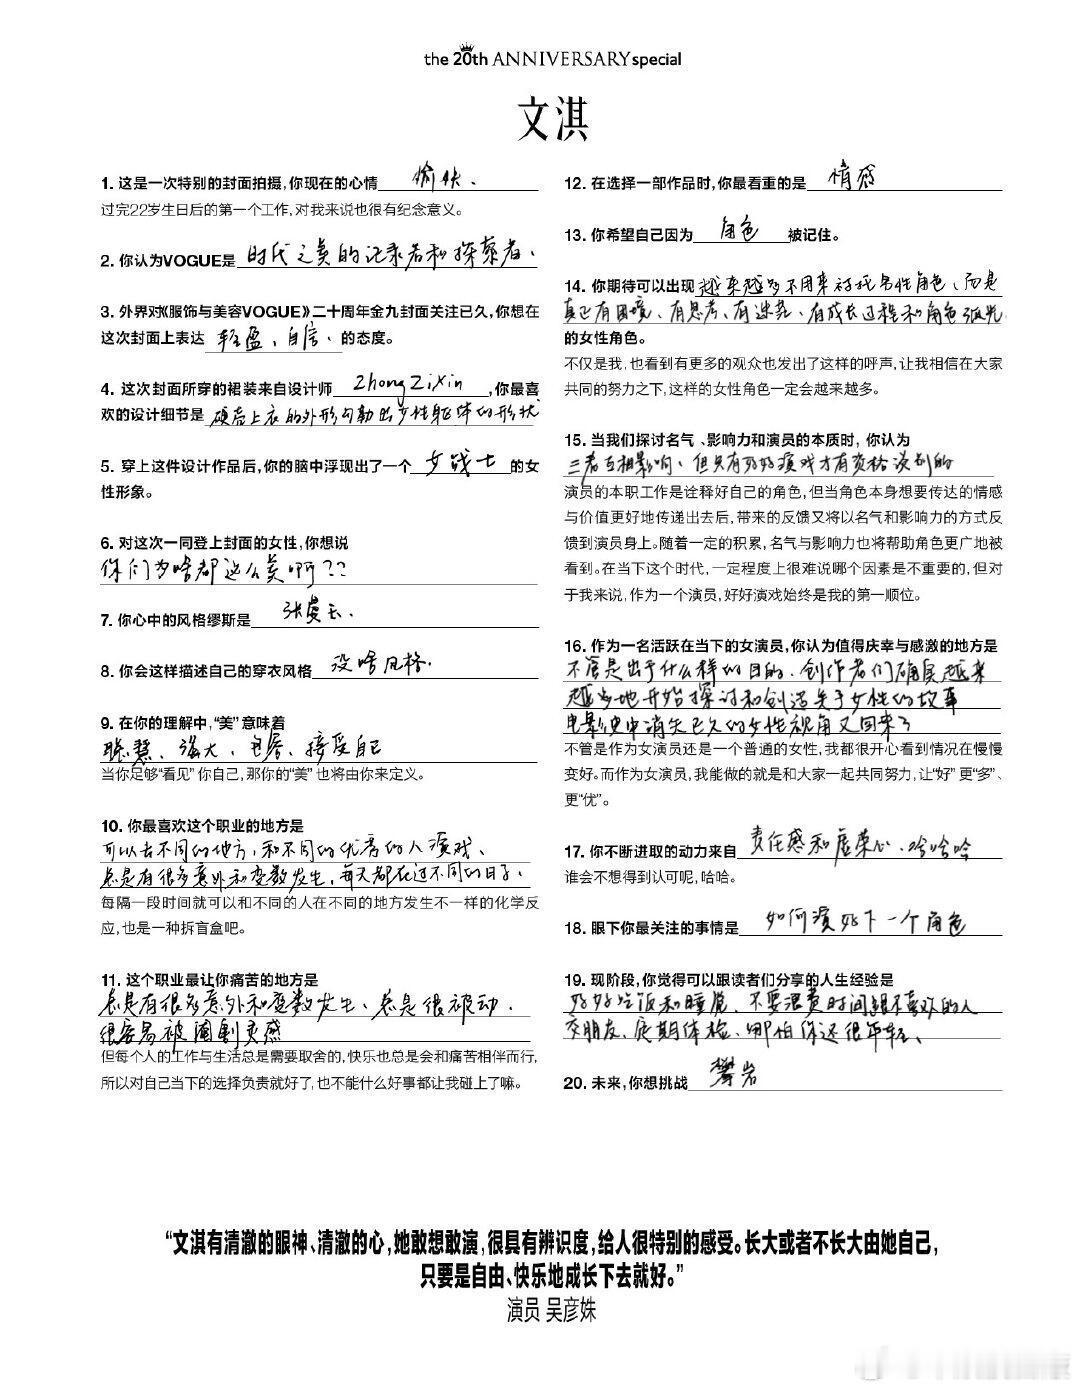 the 20th ANNIVERSARY special
文淇
1. 这是一次特别的封面拍摄,你现在的心情 愉快、
过完22岁生日后的第一个工作,对我来说也很有纪念意义。
2. 你认为VOGUE是 时代之美的记录者和探索者、
3. 外界对《服饰与美容VOGUE》二十周年金九封面关注已久,你想在
这次封面上表达 轻盈、自信、的态度。
4. 这次封面所穿的裙装来自设计师 Zhong Zixin ,你最喜
欢的设计细节是 硬壳上衣的外形勾勒出女性躯体的形状
5. 穿上这件设计作品后,你的脑中浮现出了一个 女战士 的女
性形象。
6. 对这次一同登上封面的女性,你想说
你们为啥都这么美啊??
7. 你心中的风格缪斯是 张曼玉、
8. 你会这样描述自己的穿衣风格 没啥风格.
9. 在你的理解中,“美”意味着
聪慧、强大、包容、接受自己
当你足够“看见”你自己,那你的“美”也将由你来定义。
10. 你最喜欢这个职业的地方是
可以去不同的地方,和不同的优秀的人演戏、
总是有很多意外和变数发生,每天都在过不同的日子、
每隔一段时间就可以和不同的人在不同的地方发生不一样的化学反
应,也是一种拆盲盒吧。
11. 这个职业最让你痛苦的地方是
总是有很多意外和变数发生、总是很被动、
很容易被 灵感
但每个人的工作与生活总是需要取舍的,快乐也总是会和痛苦相伴而行,
所以对自己当下的选择负责就好了,也不能什么好事都让我碰上了嘛。
12. 在选择一部作品时,你最看重的是 情感
13. 你希望自己因为 角色 被记住。
14. 你期待可以出现 越来越多不用来衬托男性角色、而是
真正有困境、有思考、有迷茫、有成长过程和角色弧光
的女性角色。
不仅是我,也看到有更多的观众也发出了这样的呼声,让我相信在大家
共同的努力之下,这样的女性角色一定会越来越多。
15. 当我们探讨名气、影响力和演员的本质时,你认为
三者互相影响、但只有好好演戏才有资格谈别的
演员的本职工作是诠释好自己的角色,但当角色本身想要传达的情感
与价值更好地传递出去后,带来的反馈又将以名气和影响力的方式反
馈到演员身上。随着一定的积累,名气与影响力也将帮助角色更广地被
看到。在当下这个时代,一定程度上很难说哪个因素是不重要的,但对
于我来说,作为一个演员,好好演戏始终是我的第一顺位。
16. 作为一名活跃在当下的女演员,你认为值得庆幸与感激的地方是
不管是出于什么样的目的、创作者们确实越来
越多地开始探讨和创造关于女性的故事
电影史中消失已久的女性视角又回来了
不管是作为女演员还是一个普通的女性,我都很开心看到情况在慢慢
变好。而作为女演员,我能做的就是和大家一起共同努力,让“好”更“多”、
更“优”。
17. 你不断进取的动力来自 责任感和虚荣心、哈哈哈
谁会不想得到认可呢,哈哈。
18. 眼下你最关注的事情是 如何演好下一个角色
19. 现阶段,你觉得可以跟读者们分享的人生经验是
好好吃饭和睡觉、不要浪费时间跟不喜欢的人
交朋友、定期体检、哪怕你还很年轻、
20. 未来,你想挑战 攀岩
“文淇有清澈的眼神、清澈的心,她敢想敢演,很具有辨识度,给人很特别的感受。长大或者不长大由她自己,
只要是自由、快乐地成长下去就好。”
演员 吴彦姝